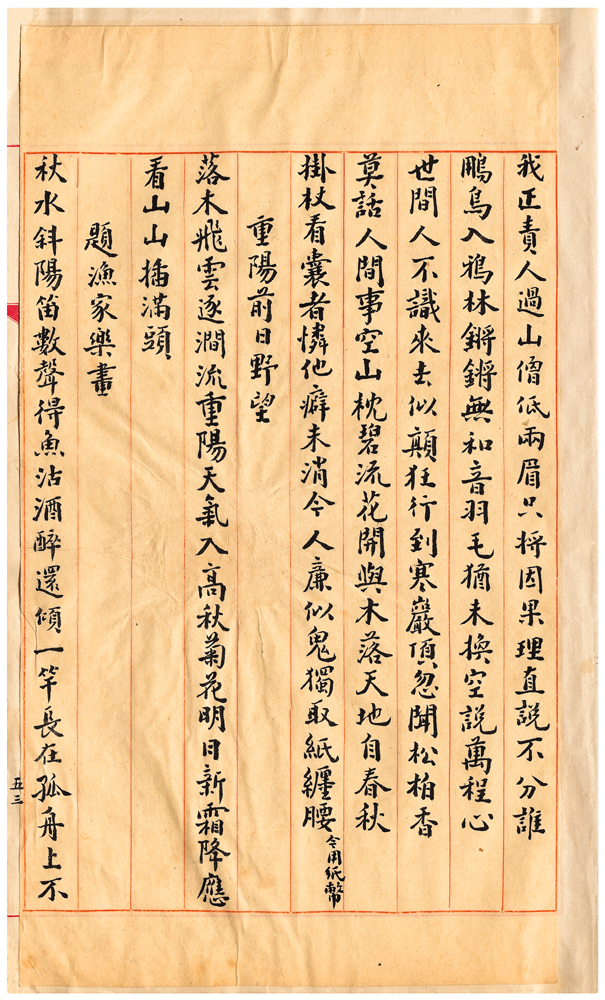 我正責人過山僧低兩眉只將因果理直説不分誰
鵬鳥入鴉林鏘鏘無和音羽毛猶未換空説萬程心
世間人不識來去似顛狂行到寒巖頂忽聞松柏香
莫話人間事空山枕碧流花開與木落天地自春秋
掛杖看囊者憐他癖未消今人廉似鬼獨取紙纏腰令用紙幣
重陽前日野望
落木飛雲逐澗流重陽天氣入高秋菊花明日新霜降應
看山山插滿頭
題漁家樂畫
秋水斜陽笛數聲得魚沽酒醉還傾一竿長在孤舟上不
五三